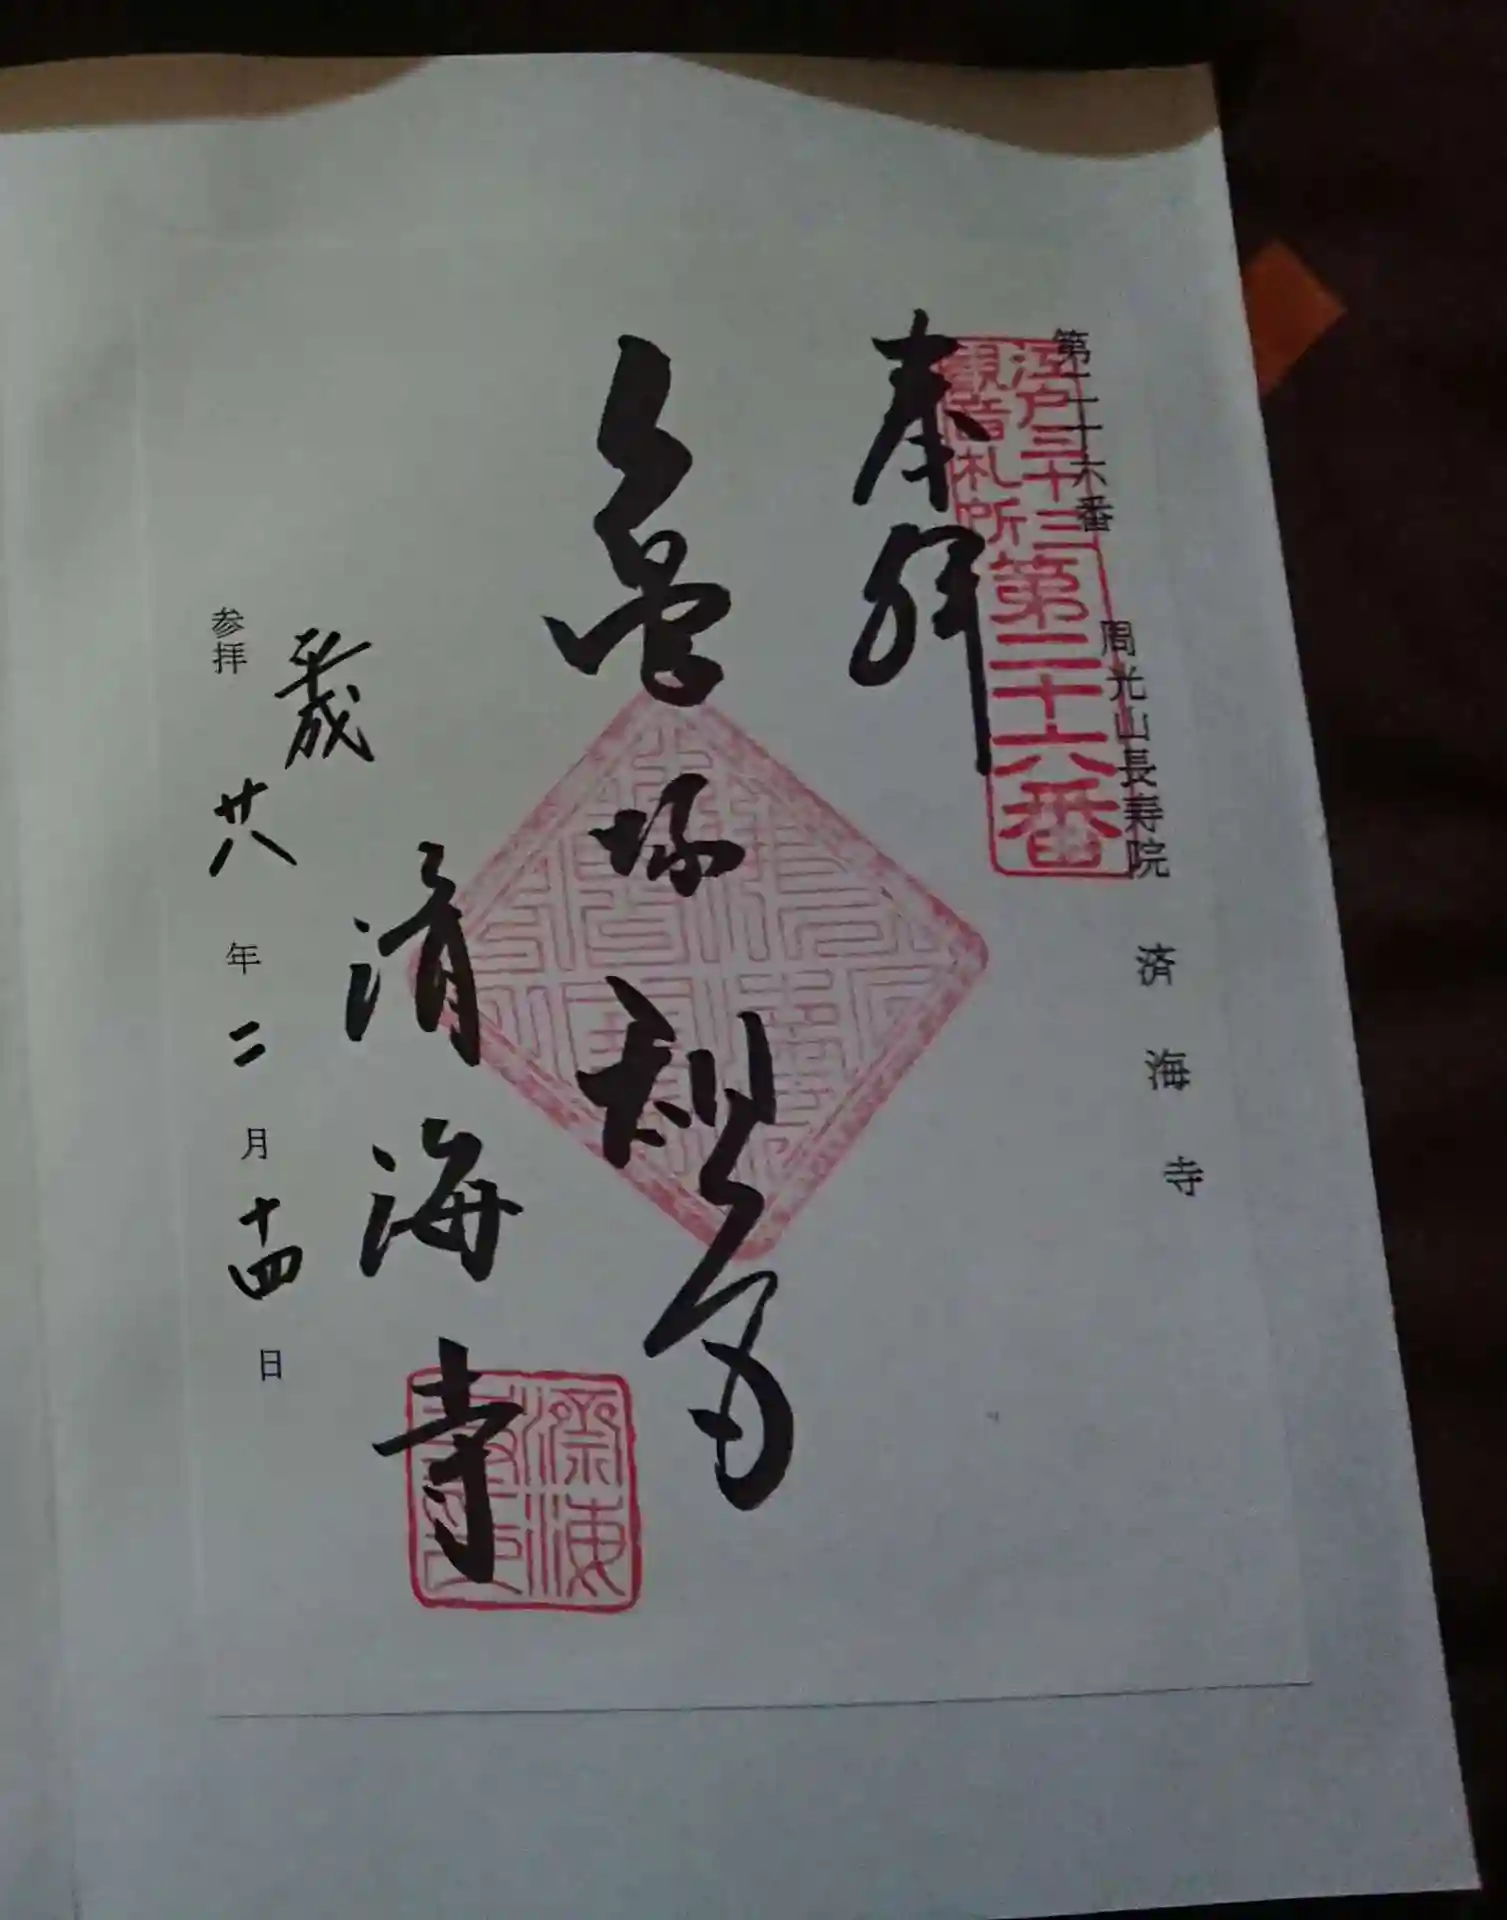 第二十六番 周光山長寿院 済海寺
江戸三十三
観音札所
第二十六番
奉拝
亀塚
済海寺
平成
参拝 廿八年二月十四日
濟海